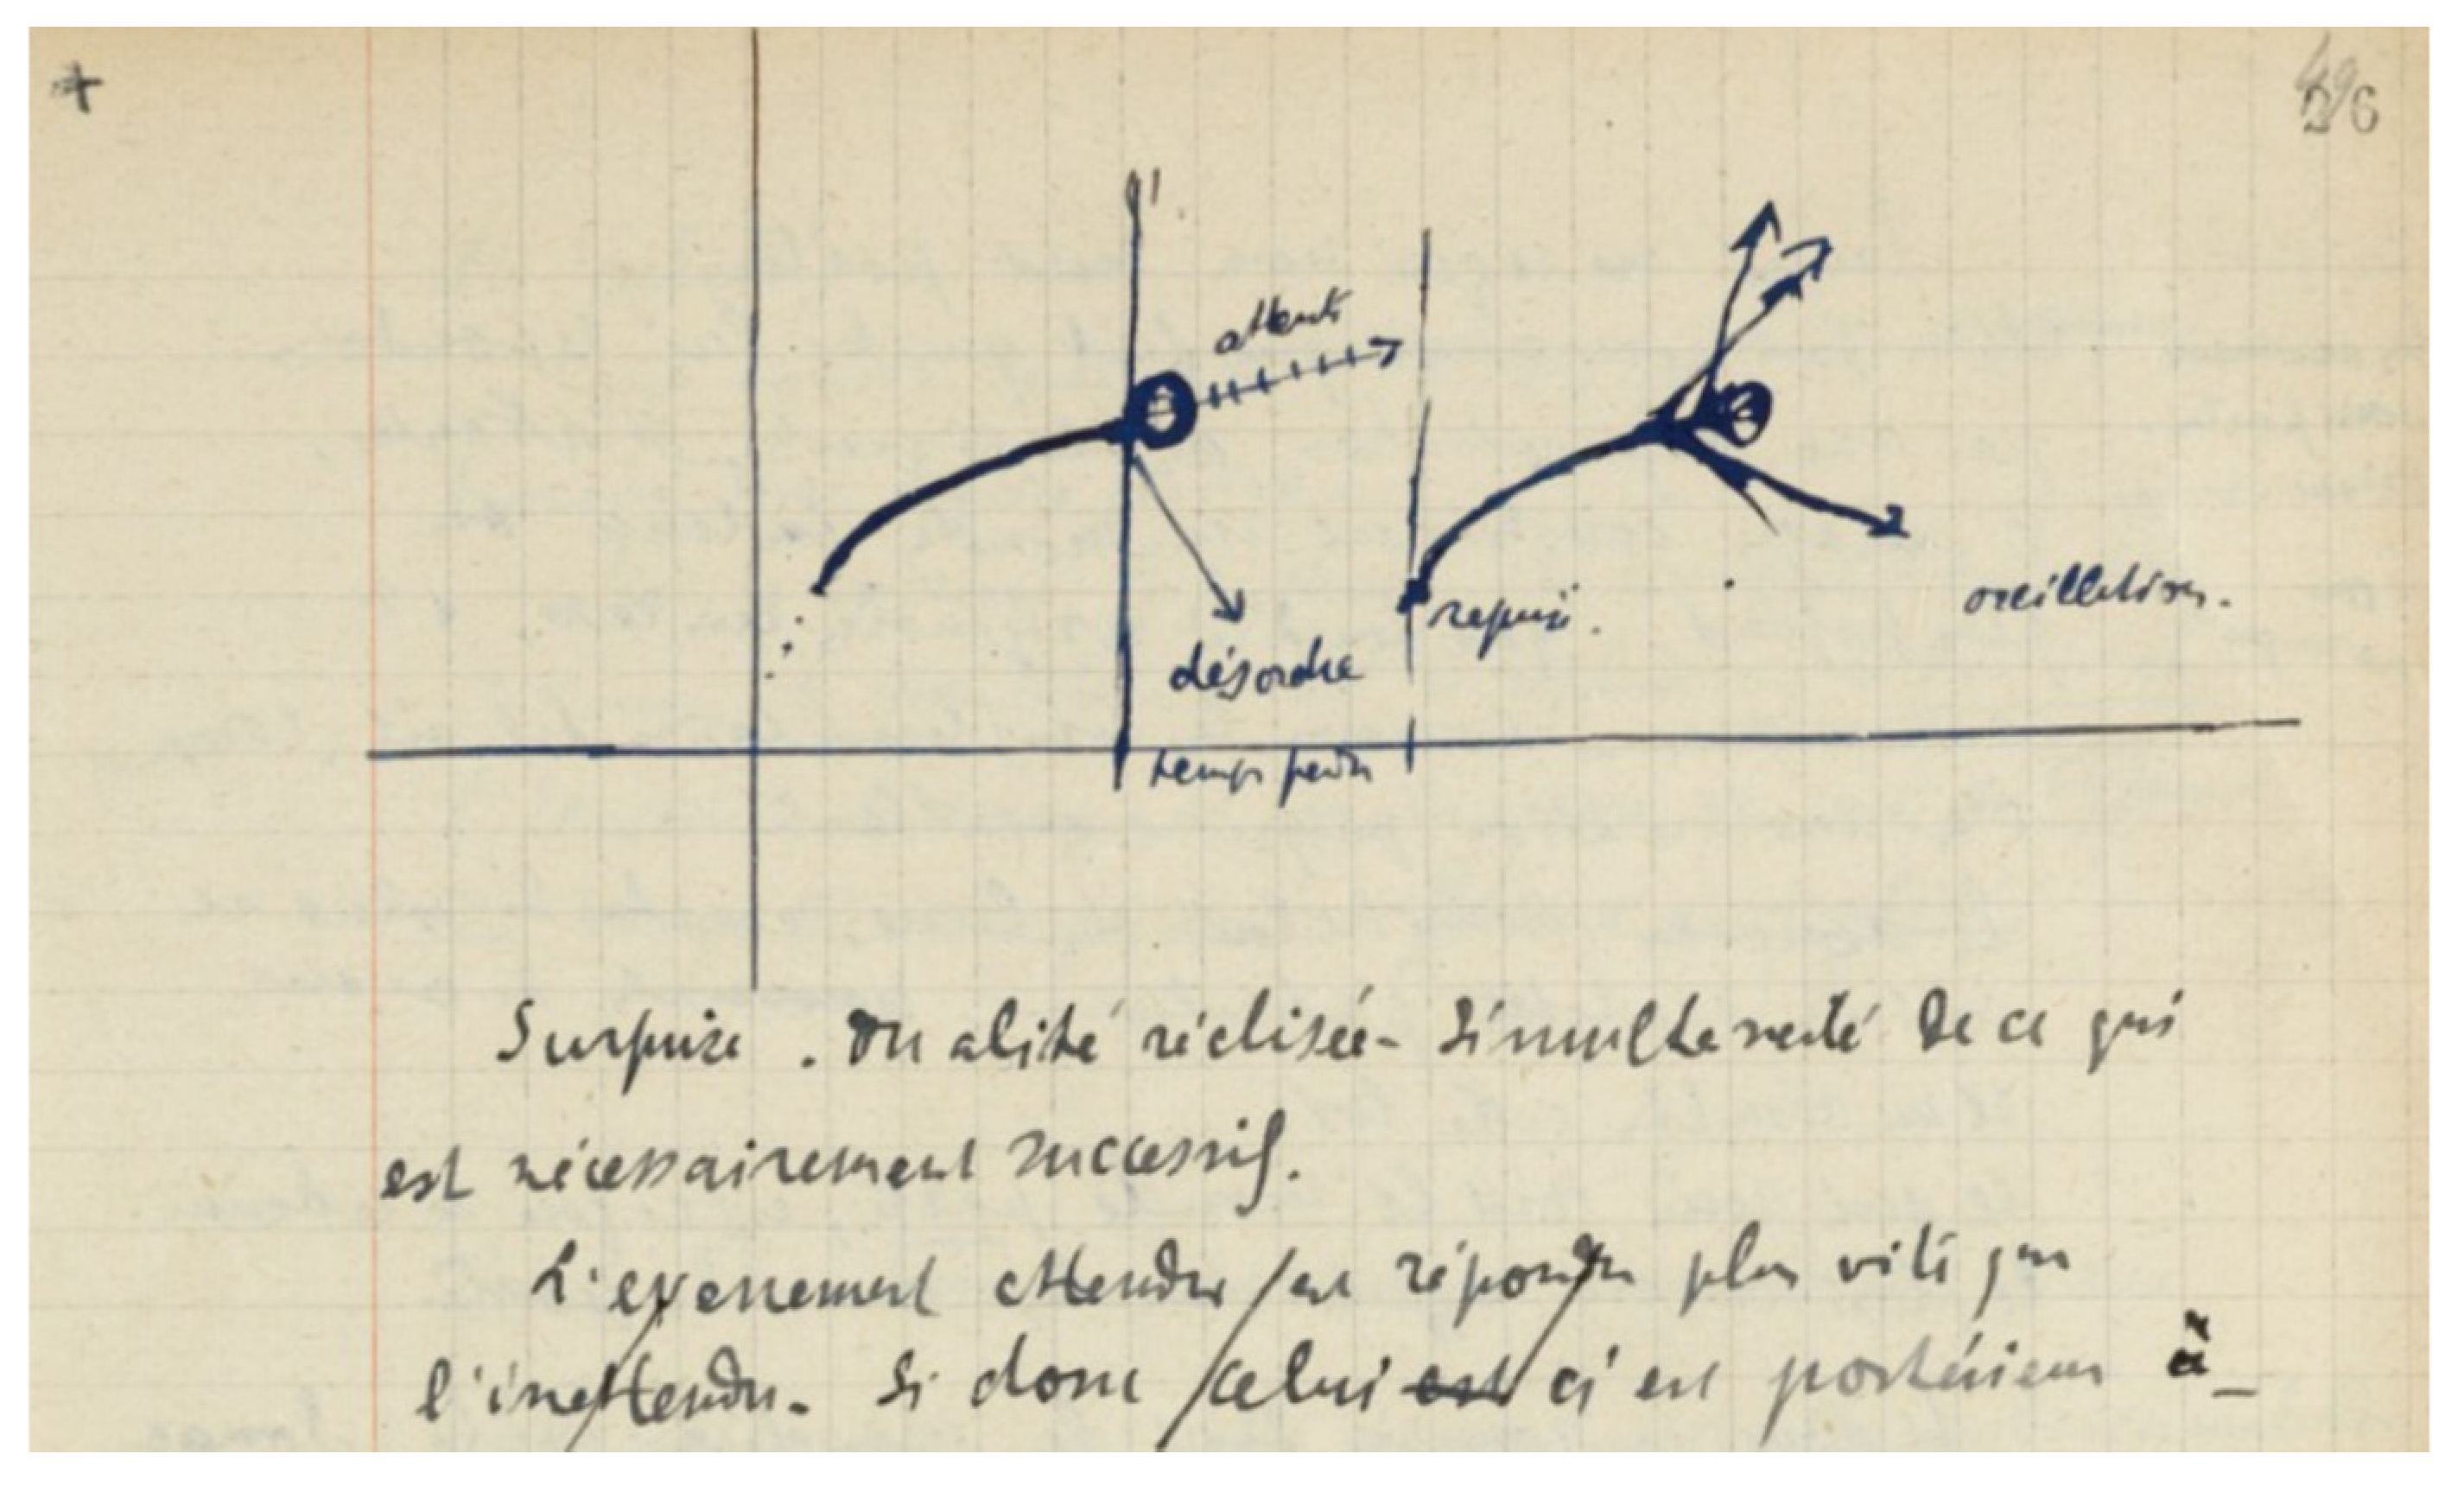 +
attente
désordre
reprise.
oscillation.
temps perdu
Surprise. Dualité réalisée - Simultaneité de ce qui
est nécessairement successif.
L'evenement attendu est répondu plus vite que
l'inattendu. Si donc celui est ci est postérieur à